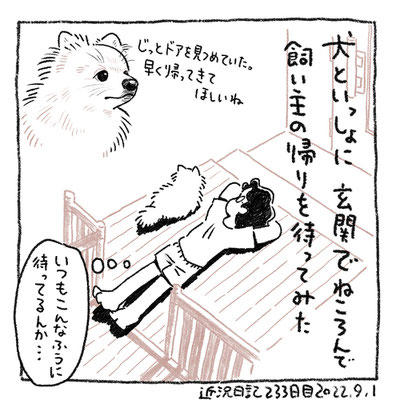 犬といっしょに 玄関でねころんで
飼い主の帰りを待ってみた
じっとドアを見つめていた。
早く帰ってきて
ほしいね
いつもこんなふうに
待ってるんか…
近況日記233日目2022.9.1